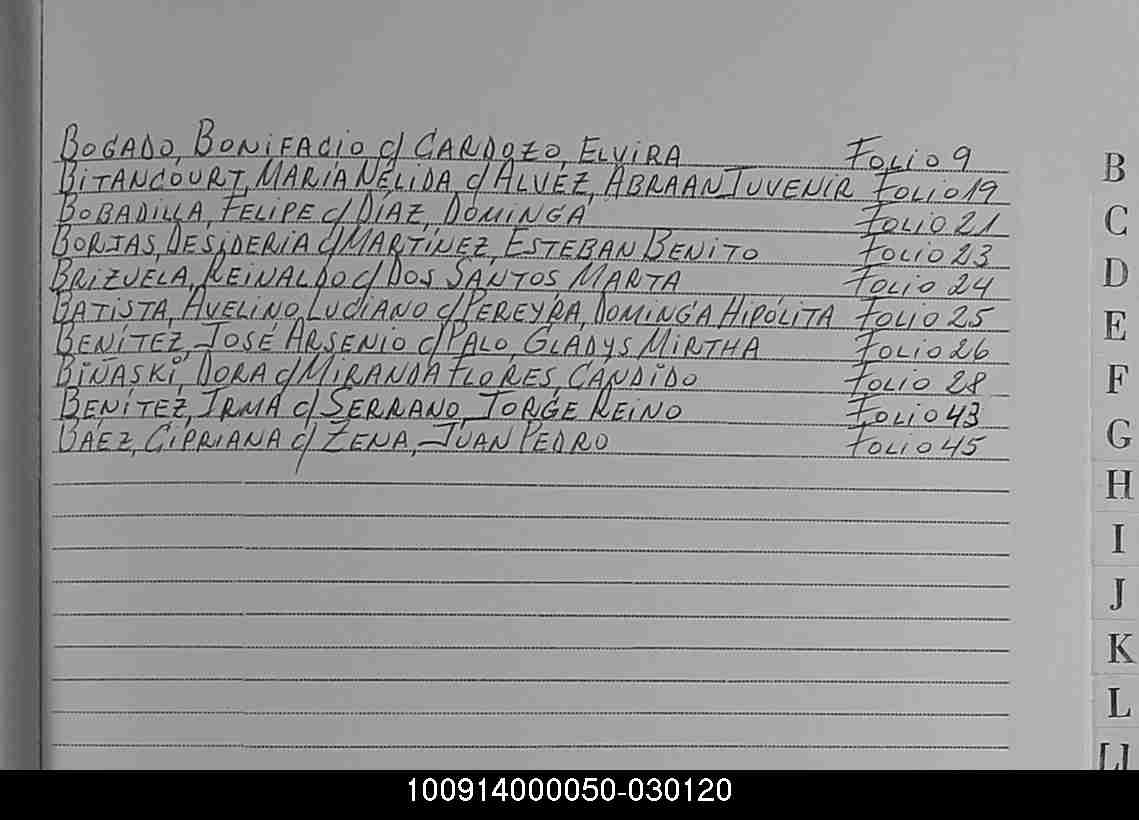 BOGADO, BONIFACIO c/ CARDOZO, ELVIRA FOLIO 9
BITANCOURT, MARÍA NÉLIDA c/ ALVEZ, ABRAAN JUVENIR FOLIO 19
BOBADILLA, FELIPE c/ DÍAZ, DOMINGA FOLIO 21
BORJAS, DESIDERIA c/ MARTÍNEZ, ESTEBAN BENITO FOLIO 23
BRIZUELA, REINALDO c/ DOS SANTOS MARTA FOLIO 24
BATISTA, AVELINO LUCIANO c/ PEREYRA, DOMINGA HIPÓLITA FOLIO 25
BENÍTEZ, JOSÉ ARSENIO c/ PALO, GLADYS MIRTHA FOLIO 26
BIÑASKI, DORA c/ MIRANDA FLORES, CANDIDO FOLIO 28
BENÍTEZ, IRMA c/ SERRANO, JORGE REINO FOLIO 43
BÁEZ, CIPRIANA c/ ZENA, JUAN PEDRO FOLIO 45
B
C
D
E
F
G
H
I
J
K
L
LL
100914000050-030120